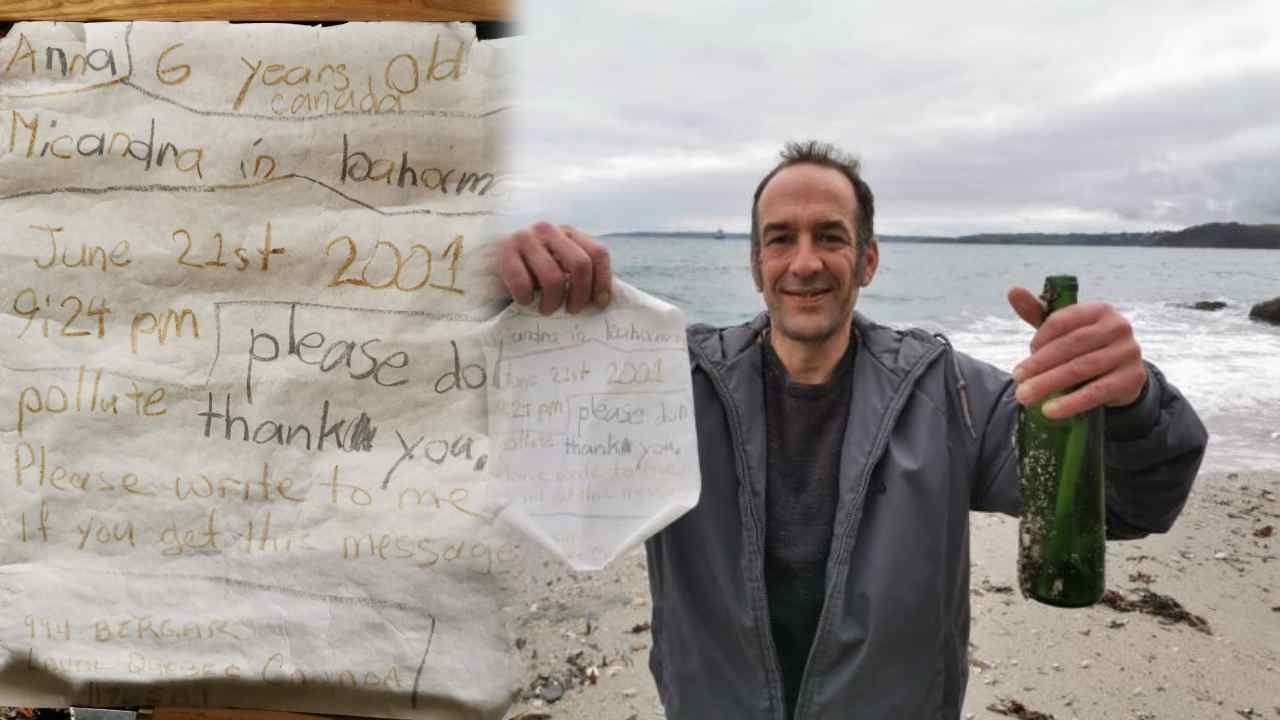 Anna 6 years old
canada
Micandra in bahama
June 21st 2001
9:24 pm please don
pollute thank you.
Please write to me
If you get this message
994 BERGAR
Laval Quebec Canada
andra in bahama
June 21st 2001
pm please don
thank you.